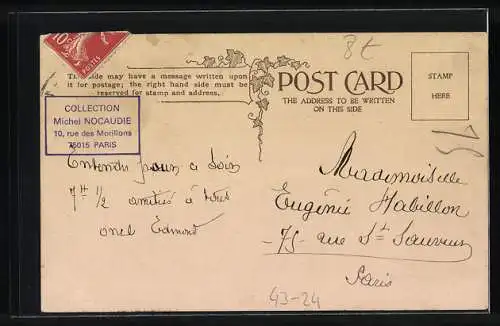 10c
POSTES
8€
This side may have a message written upon
it for postage; the right hand side must be
reserved for stamp and address.
POST CARD
THE ADDRESS TO BE WRITTEN
ON THIS SIDE
STAMP
HERE
COLLECTION
Michel NOCAUDIE
10, rue des Morillons
75015 PARIS
Entendu pour ce soir
7H 1/2 amitiés à tous
oncl Edmond
75
Mademoiselle
Eugénie Habillon
75 rue St Sauveur
Paris
43-24